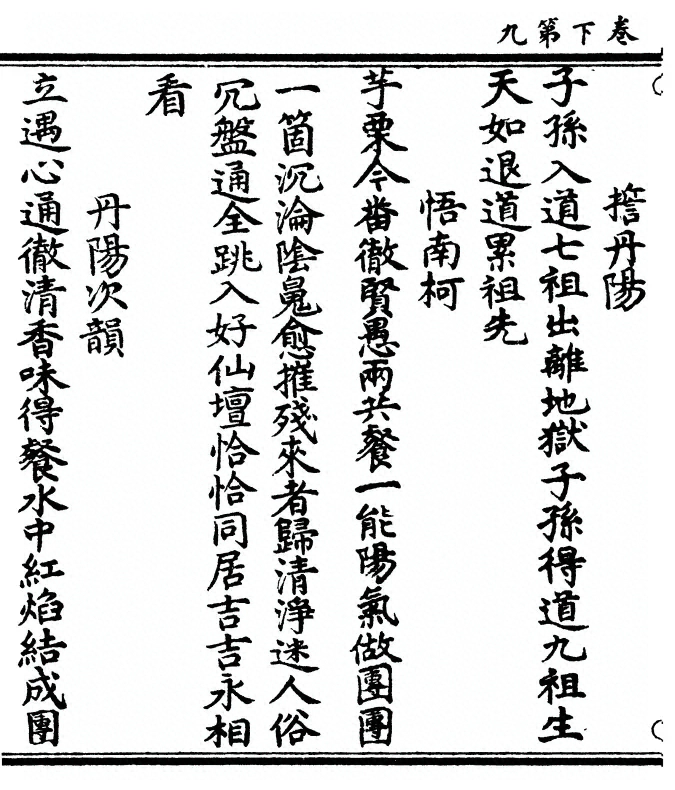 卷下第九
擔丹陽
子孫入道七祖出離地獄子孫得道九祖生
天如退道累祖先
悟南柯
芋栗今番徹賢愚兩共餐一能陽氣做團團
一箇沉淪陰鬼愈摧殘來者歸清淨迷人俗
冗盤通全跳入好仙壇恰恰同居吉吉永相
看
丹陽次韻
立遇心通徹清香味得餐水中紅焰結成團